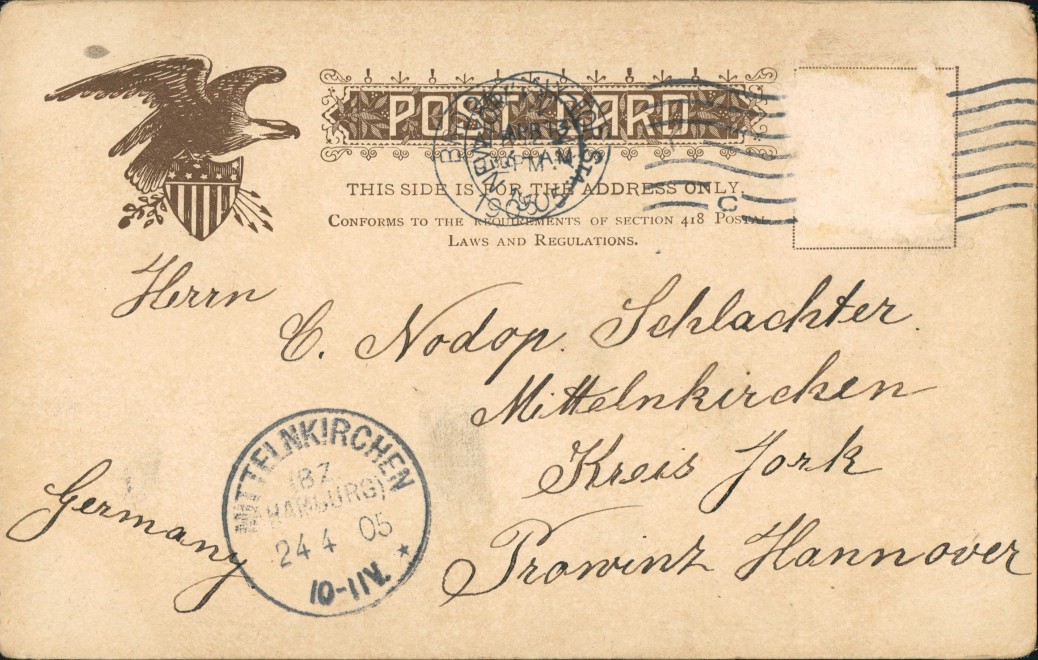 POSTAL CARD
THIS SIDE IS FOR THE ADDRESS ONLY.
CONFORMS TO THE REQUIREMENTS OF SECTION 418 POSTAL
LAWS AND REGULATIONS.
APR 13
1905
C
Herrn
C. Nodop. Schlachter.
Mittelnkirchen
Kreis Jork
Prowinz Hannover
Germany
MITTELNKIRCHEN
(BZ.
HAMBURG)
24 4 05
10-11V.